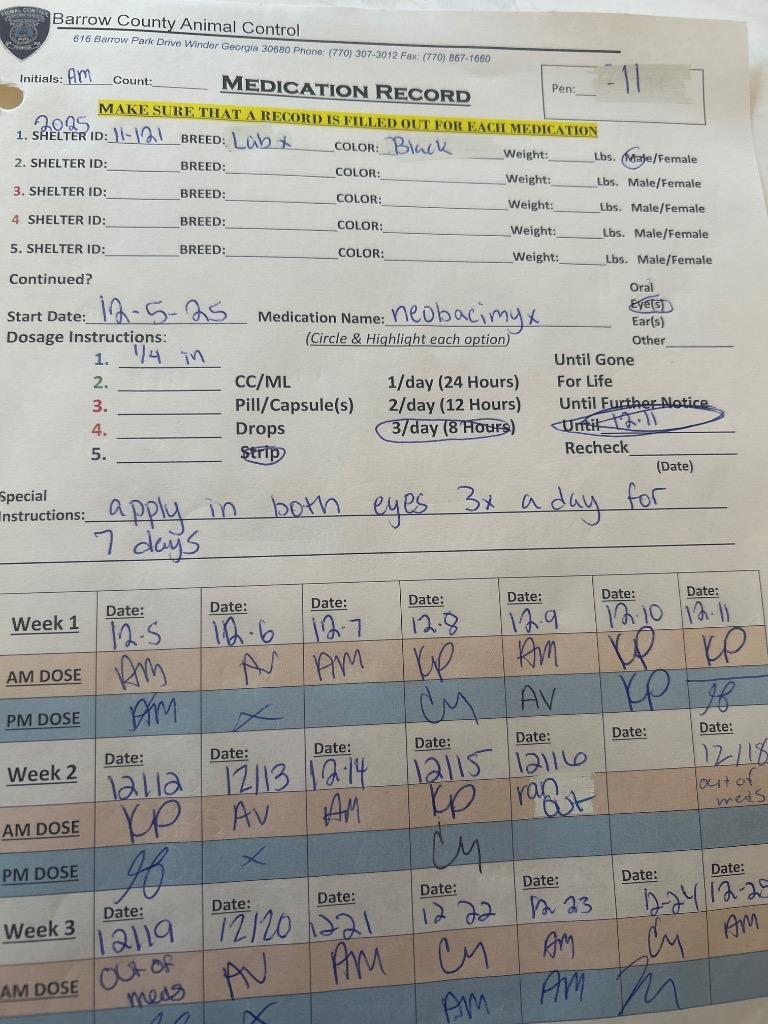 Barrow County Animal Control
616 Barrow Park Drive Winder Georgia 30680 Phone: (770) 307-3012 Fax: (770) 867-1660
Initials: AM Count:
MEDICATION RECORD
Pen: -11
MAKE SURE THAT A RECORD IS FILLED OUT FOR EACH MEDICATION
2025
1. SHELTER ID: 11-121 BREED: Lab x COLOR: Black Weight: Lbs. Male/Female
2. SHELTER ID: BREED: COLOR: Weight: Lbs. Male/Female
3. SHELTER ID: BREED: COLOR: Weight: Lbs. Male/Female
4 SHELTER ID: BREED: COLOR: Weight: Lbs. Male/Female
5. SHELTER ID: BREED: COLOR: Weight: Lbs. Male/Female
Continued?
Oral
Start Date: 12-5-25 Medication Name: neobacimyx Eye(s)
Ear(s)
Dosage Instructions: (Circle & Highlight each option) Other
1. 1/4 in Until Gone
2. CC/ML 1/day (24 Hours) For Life
3. Pill/Capsule(s) 2/day (12 Hours) Until Further Notice
4. Drops 3/day (8 Hours) Until 12.11
5. Strip Recheck
(Date)
Special
Instructions: apply in both eyes 3x a day for
7 days
Week 1 Date: 12.5 Date: 12.6 Date: 12.7 Date: 12.8 Date: 12.9 Date: 12.10 Date: 12.11
AM DOSE AM AV AM KP AM KP KP
PM DOSE AM x Cy AV KP
Week 2 Date: 12/12 Date: 12/13 Date: 12.14 Date: 12/15 Date: 12/16 Date: Date: 12/18
AM DOSE KP AV AM KP ran out out of meds
PM DOSE x Cy
Week 3 Date: 12/19 Date: 12/20 Date: 12 21 Date: 12 22 Date: 12 23 Date: 12-24 Date:
AM DOSE out of meds AV AM Cy AM Cy AM
x AM AM